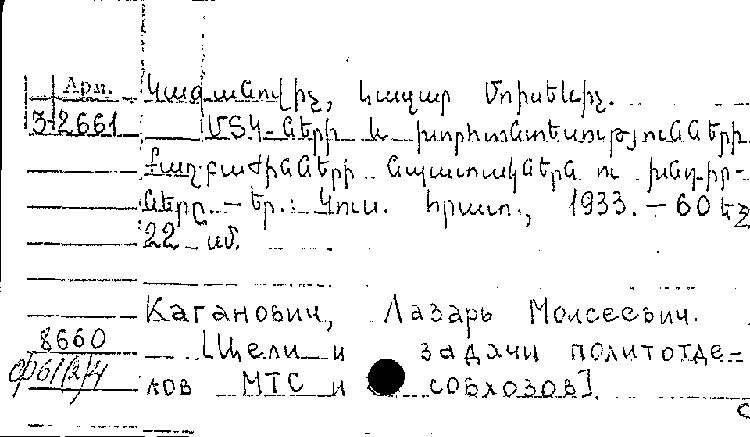 Арм. Կագանովիչ, Լազար Մոիսեևիչ.
3-2661 ՄՏԿ-ների և խորհտնտեսությունների
քաղբաժինների նպատակները ու խնդիր-
ները. — Եր.: Կուս. հրատ., 1933. — 60 եջ
22 սմ.
Каганович, Лазарь Моисеевич.
8660 [Цели и задачи политотде=
лов МТС и совхозов].